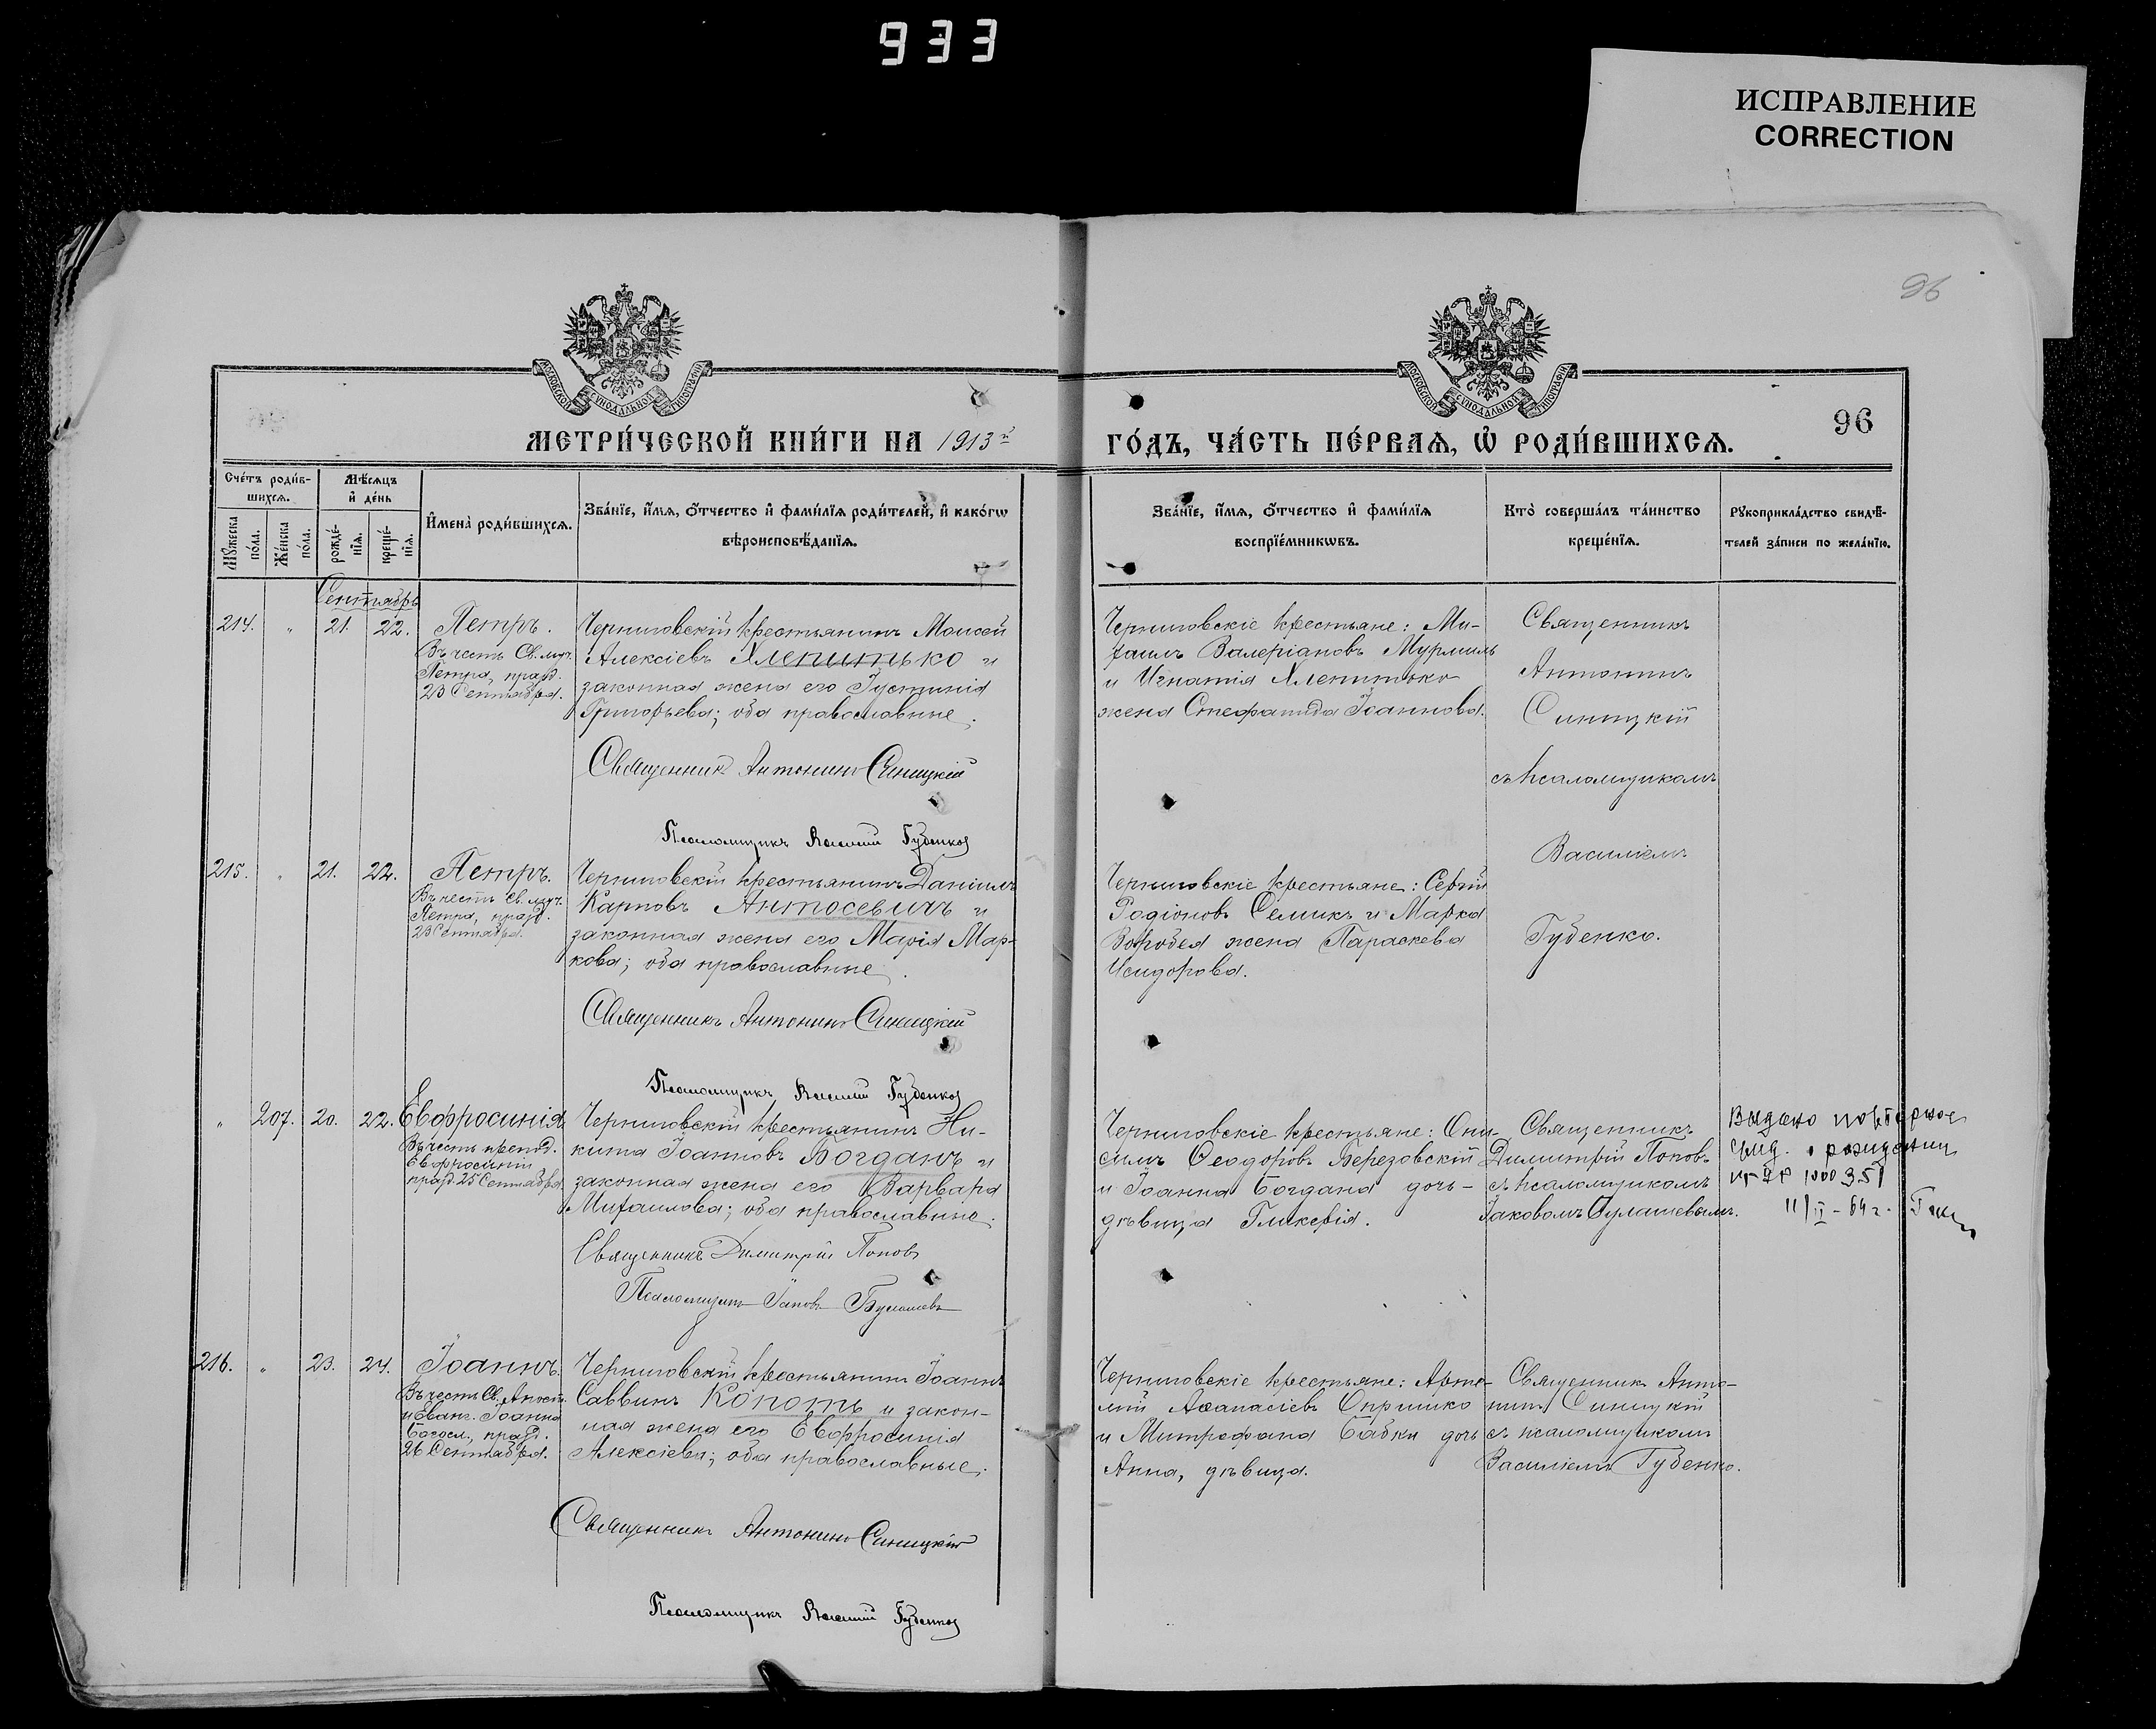 933
ИСПРАВЛЕНИЕ
CORRECTION
96
96
МОСКОВСКОЙ СѴНОДАЛЬНОЙ ТИПОГРАФІИ
МОСКОВСКОЙ СѴНОДАЛЬНОЙ ТИПОГРАФІИ
МЕТРИ́ЧЕСКОЙ КНИ́ГИ НА 1913й
ГО́ДЪ, ЧА́СТЬ ПЕ́РВАѦ, Ѽ РОДИ́ВШИХСѦ.
Сче́тъ роди́в-
шихсѧ.
Мꙋ́жеска
по́ла.
Же́нска
по́ла.
Мѣ́сѧцъ
и҆ де́нь
рожде́-
нїѧ.
креще́-
нїѧ.
И҆мена̀ роди́вшихсѧ.
Зва́нїе, и҆́мѧ, ѻ҆́тчество и҆ фами́лїѧ роди́телей, и҆ како́гѡ
вѣроисповѣ́данїѧ.
Зва́нїе, и҆́мѧ, ѻ҆́тчество и҆ фами́лїѧ
воспрїе́мникѡвъ.
Кто̀ соверша́лъ та́инство
креще́нїѧ.
Рꙋкоприкла́дство свидѣ́-
телей за́писи по жела́нїю.
Сентябрь
214. " 21. 22. Петръ.
Въ честь Св. муч.
Петра, празд.
23 Сентября.
Черниговскій крестьянинъ Моисей
Алексіевъ Хлепитько и
законная жена его Іустинія
Григорьева; оба православные.
Священникъ Антонинъ Синицкій
Псаломщикъ Василій Губенко
Черниговскіе крестьяне: Ми-
хаилъ Валеріановъ Мурмиль
и Игнатія Хлепитько
жена Стефанида Іоаннова.
Священникъ
Антонинъ
Синицкій
съ псаломщикомъ
Василіемъ
Губенко.
215. " 21. 22. Петръ.
Въ честь Св. муч.
Петра, празд.
23 Сентября.
Черниговскій крестьянинъ Даніилъ
Карповъ Антосевичъ и
законная жена его Марія Мар-
кова; оба православные.
Священникъ Антонинъ Синицкій
Псаломщикъ Василій Губенко
Черниговскіе крестьяне: Сергій
Родіоновъ Семикъ и Марка
Воробея жена Параскева
Исидорова.
" 207. 20. 22. Евфросинія
Въ честь препод.
Евфросиніи
празд. 25 Сентября
Черниговскій крестьянинъ Ни-
кита Іоанновъ Богданъ и
законная жена его Варвара
Михаилова; оба православные.
Священникъ Димитрій Поповъ
Псаломщикъ Іаковъ Булашевъ
Черниговскіе крестьяне: Они-
симъ Ѳеодоровъ Березовскій
и Іоанна Богдана дочь-
дѣвица Гликерія.
Священникъ
Димитрій Поповъ
съ псаломщикомъ
Іаковомъ Булашевымъ.
Выдано повторное
свид. о рождении
1000351
11/II - 64 г.
216. " 23. 24. Іоаннъ.
Въ честь Св. Апост.
и Еванг. Іоанна
Богосл., празд.
26 Сентября.
Черниговскій крестьянинъ Іоаннъ
Саввинъ Копоть и закон-
ная жена его Евфросинія
Алексіева; оба православные.
Священникъ Антонинъ Синицкій
Псаломщикъ Василій Губенко
Черниговскіе крестьяне: Арте-
мій Аѳанасіевъ Опришко
и Митрофана Бабки дочь
Анна, дѣвица.
Священникъ Анто-
нинъ Синицкій
съ псаломщикомъ
Василіемъ Губенко.